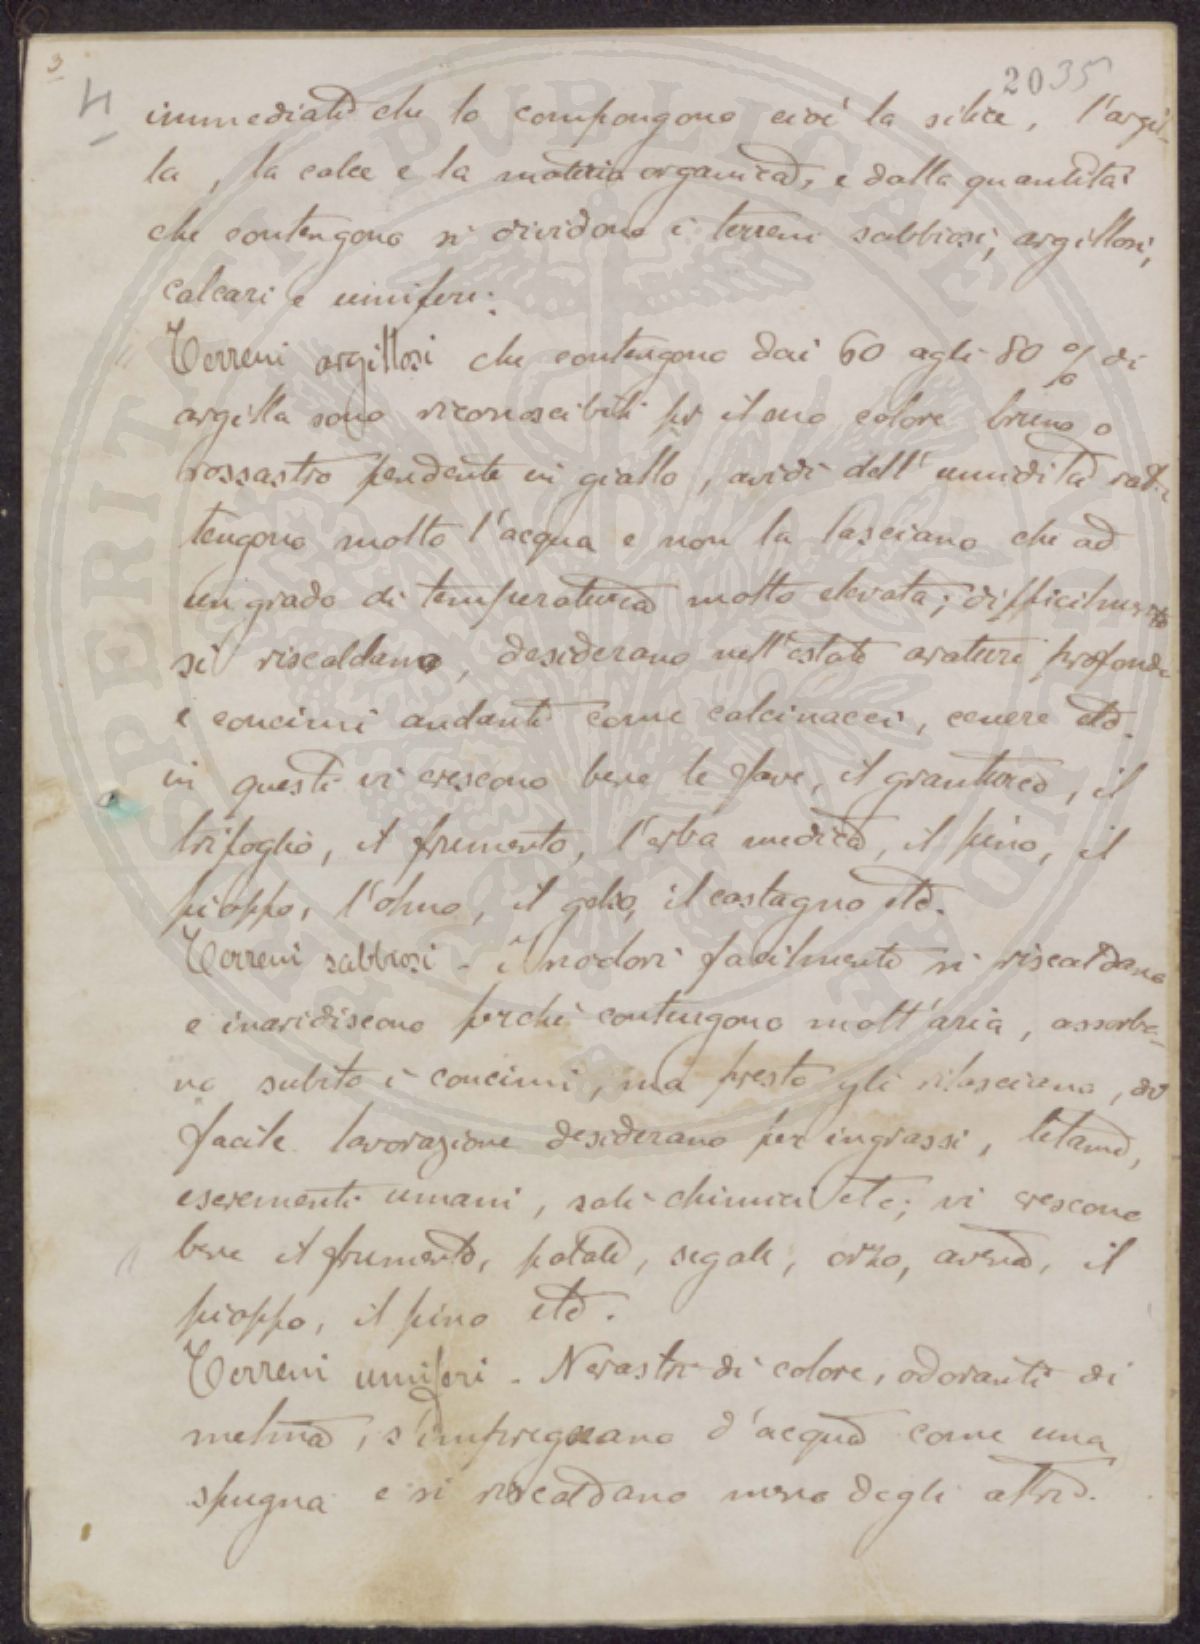 3
4
2035
immediati che lo compongono cioè la silice, l'argil-
la, la calce e la materia organica, e dalla quantità
che contengono si dividono i terreni sabbiosi, argillosi,
calcari e umiferi.
Terreni argillosi che contengono dai 60 agli 80 % di
argilla sono riconoscibili per il suo colore bruno o
rossastro pendente in giallo, avidi dell'umidità rat-
tengono molto l'acqua e non la lasciano che ad
un grado di temperatura molto elevata; difficilmente
si riscaldano, desiderano nell'estate arature profonde
e concimi andanti come calcinacci, cenere etc.
in questi vi crescono bene le fave, il granturco, il
trifoglio, il frumento, l'erba medica, il pino, il
pioppo, l'olmo, il gelso, il castagno etc.
Terreni sabbiosi - Inodori facilmente si riscaldano
e inaridiscono perchè contengono molt'aria, assorbo-
no subito i concimi, ma presto gli rilasciano, di
facile lavorazione desiderano per ingrassi, letame,
escrementi umani, sali chimici etc; vi crescono
bene il frumento, patate, segale, orzo, avena, il
pioppo, il pino etc.
Terreni umiferi - Nerastri di colore, odoranti di
melma, s'impregnano d'acqua come una
spugna e si riscaldano meno degli altri.
SPERITATI PVBLICAE